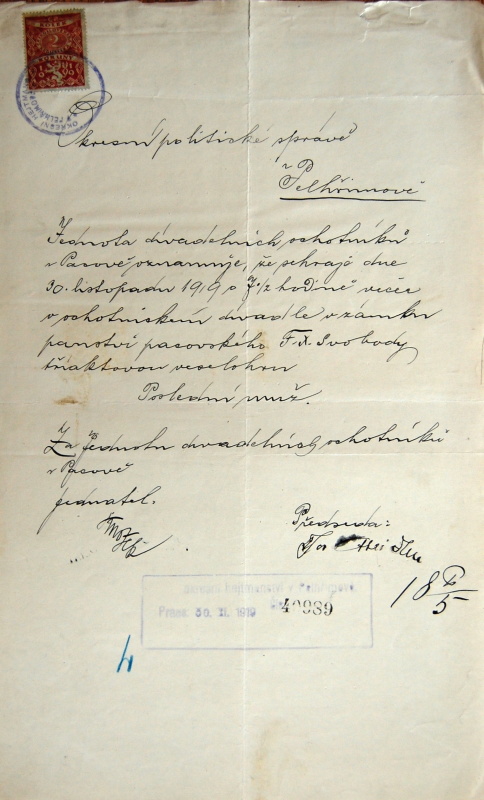 2
KORUNY
Okresní politické správě
v Pelhřimově
Jednota divadelních ochotníků
v Pacově oznamuje, že sehrají dne
30. listopadu 1919 o 7½ hodině večer
v ochotnickém divadle v zámku
panství pacovského F. X. Svobody
tříaktovou veselohru
Poslední muž.
Za Jednotu divadelních ochotníků
v Pacově
jednatel.
Předseda:
Praes. 30. XI. 1919 40989
18
5
4